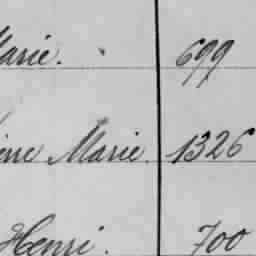 Marie. 699
Marie. 1326
Henri. 700